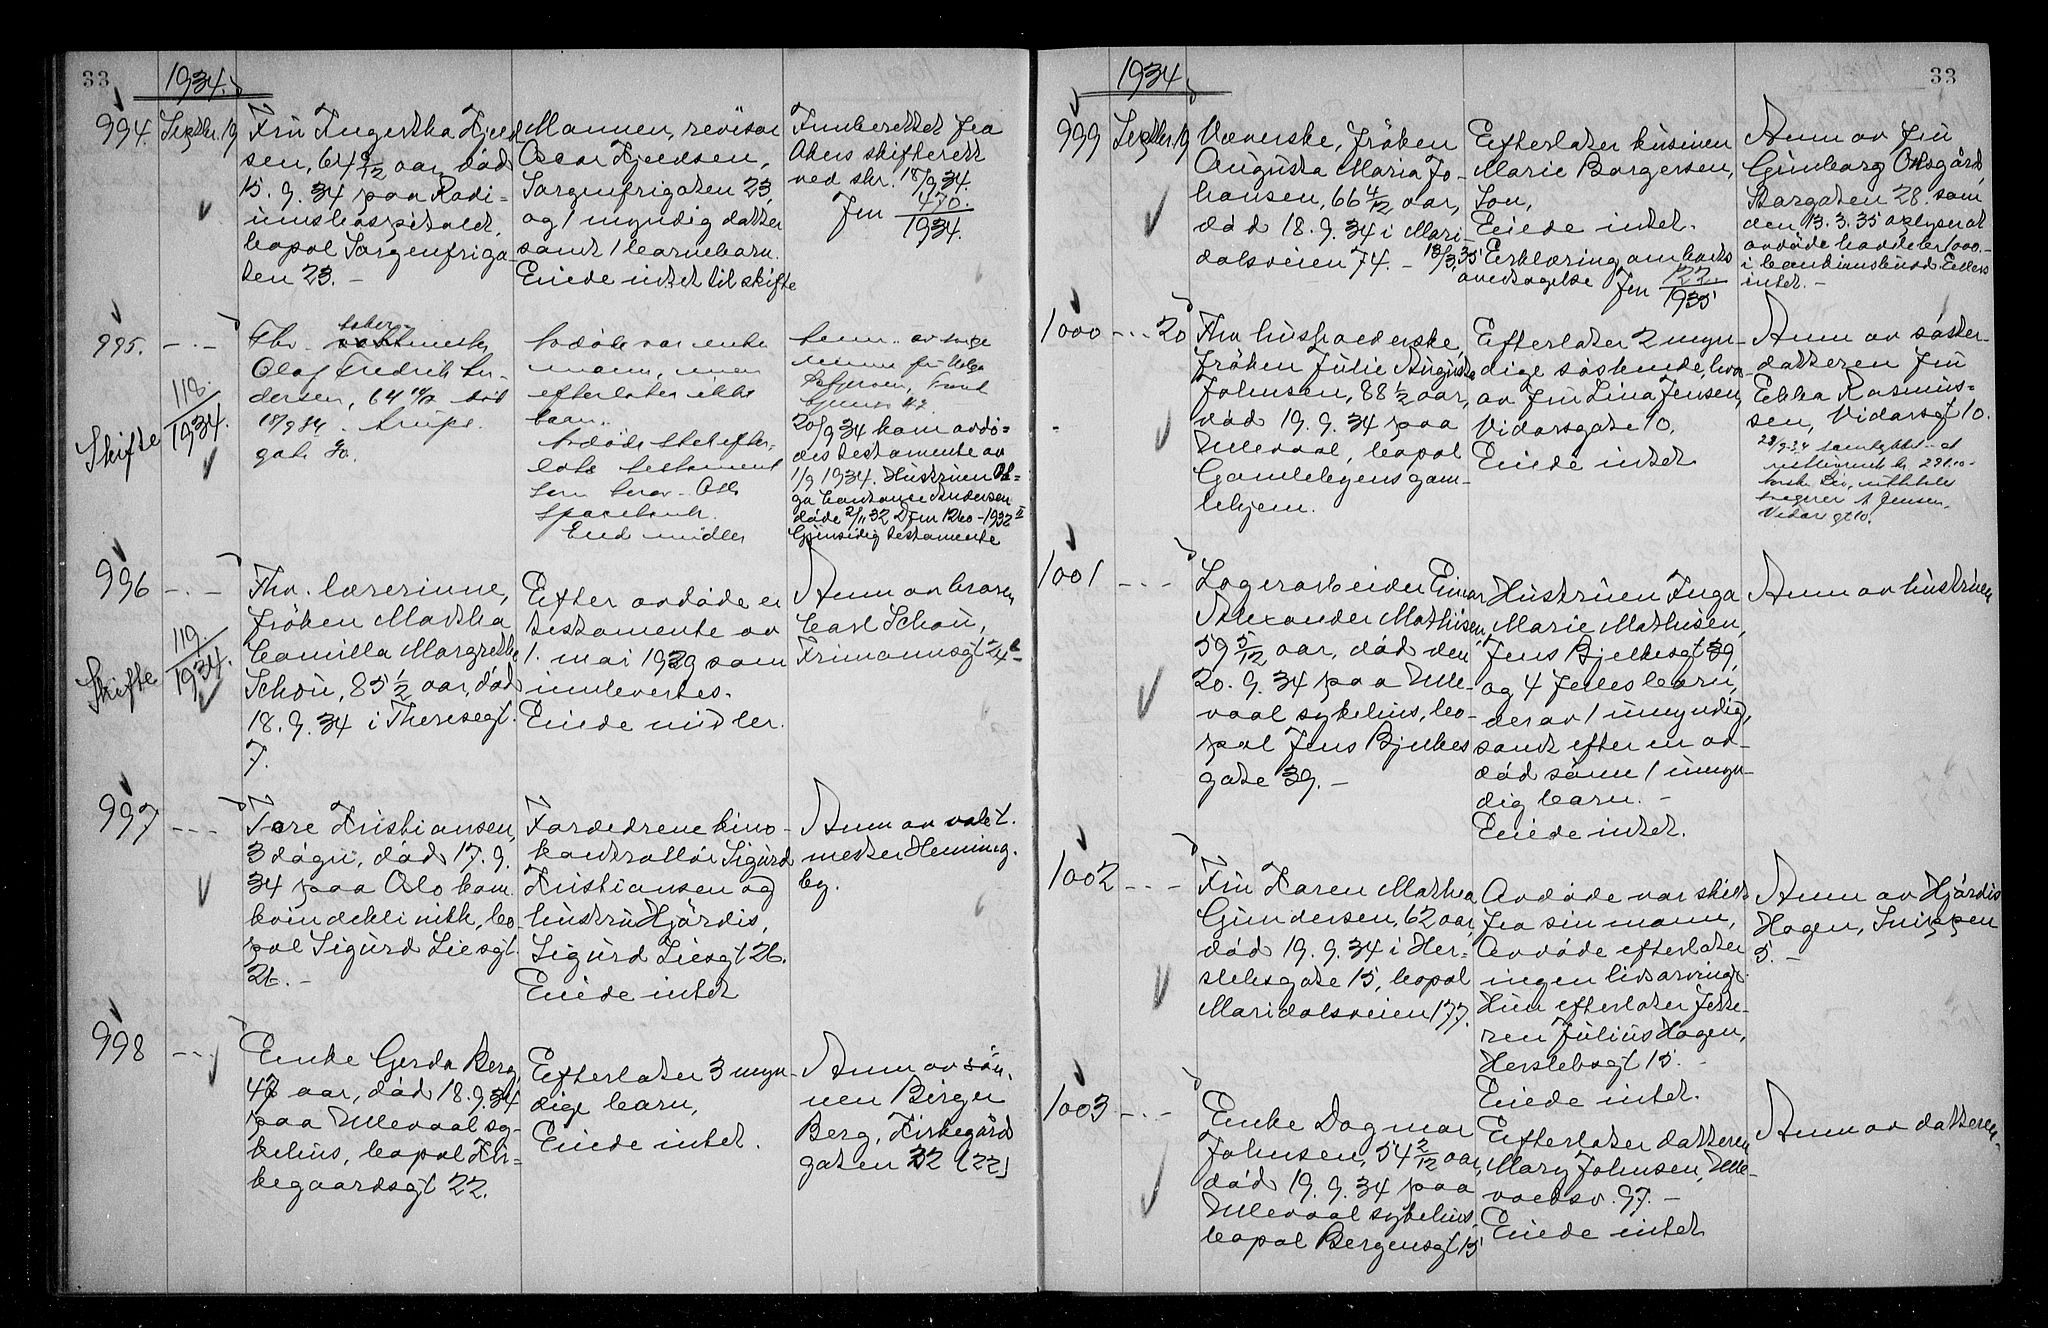 33
1934.
994. Septbr. 19
Fru Ingertha Kjend
sen, 64 9/12 aar, död
15. 9. 34 paa Radi=
umshospitalet,
bopal Sorgenfriga
ten 23. -
Mannen, revisor
Oscar Kjendsen,
Sorgenfrigaten 23,
og 1 myndig datter
samt 1 barnebarn.
Eiede intet til skifte
Innberettet fra
Akers skifterett
ved skr. 18/9 34.
Jnr 470.
1934.
995. - . -
118.
1934.
Skifte
Fhv.
Olaf Fredrik An-
dersen, 64 död
18/9 34.
gate
Avdöde var enke
mann, men
efterlater ikke
barn.
Avdöde skal efter-
late testament
som beror i Oslo
Sparebank.
Eied midler
Anm. av
20/9 34 kom avdö=
des testamente av
1/9 1934. Hustruen
Constance Andersen
döde 2/11 32 Jnr 1260-1932 II
Gjensidig testamente
996 - . -
119.
1934.
Skifte
Fhv. lærerinne,
fröken Martha
Camilla Margrethe
Schou, 85 1/2 aar, död
18. 9. 34 i Theresegt.
7.
Efter avdöde er
testamente av
1. mai 1929 som
innlevertes.
Eiede midler.
Anm av broren
Carl Schou,
Frimannsgt 24
997 - - -
Tore Kristiansen,
3 dögn, död 17. 9.
34 paa Oslo kom.
kvindeklinikk, bo
pal Sigurd Liesgt.
26. -
Foreldrene kino-
kontrollör Sigurd
Kristiansen og
hustru Hjördis,
Sigurd Liesgt 26.
Eiede intet
Anm av vakt.
mester Henning.
by.
998 - - -
Enke Gerda Berg,
47 aar, död 18. 9. 34
paa Ullevaal sy-
kehus, bopal Kir=
kegaardsgt 22.
Efterlater 3 myn-
dige barn,
Eiede intet.
Anm av sön-
nen Birger
Berg, Kirkegård
gaten 32 [22]
33
1934
999 Septbr. 19
Væverske, fröken
Augusta Maria Jo-
hansen, 66 4/12 aar,
död 18. 9. 34 i Mari-
dalsveien 74. -
Efterlater kusinen
Marie Borgersen,
Son,
Eiede intet.
18/3.35 Erklæring om boets
overtagelse Jnr 722
1935
Anm av fru
Gunborg
Storgaten 28. som
den 13.3.35 oplyser at
avdöde hadde kr 1000.-
i bankinnskudd Ellers
intet. -
1000 - . . 20
Fhv husholderske
fröken Julie Augusta
Johnsen, 88 1/2 aar,
död 19. 9. 34 paa
Ullevaal, bopal
Gamlebyens gam-
lehjem.
Efterlater 2 myn-
dige söskende, hvor
av fru Lina Jensen,
Vidarsgate 10,
Eiede intet
Anm av söster-
datteren fru
Ebba Rasmus=
sen, Vidarsgt 10.
28/9 34 samtykket at
A Jensen,
Vidarsgt 10.
1001 - . -
Lagerarbeider Einar
Alexander Mathisen,
59 5/12 aar, död den
20. 9. 34 paa Ulle-
vaal sykehus, bo-
pal Jens Bjelkes
gate 39. -
Hustruen Inga
Marie Mathisen,
Jens Bjelkesgt 39,
og 4 felles barn,
derav 1 umyndig,
samt efter en av-
död sönn 1 umyn-
dig barn. -
Eiede intet.
Anm av hustruen
1002 - - -
Fru Karen Mathea
Gundersen, 62 aar,
död 19. 9. 34 i Her=
slebsgate 15, bopal
Maridalsveien 177.
Avdöde var skilt
fra sin mann,
Avdöde efterlater
ingen livsarving.
Hun efterlater fette-
ren Julius Hagen,
Herslebsgt 15. -
Eiede intet.
Anm av Hjördis
Hagen, Snippen
5. -
1003 - . -
Enke Dagmar
Johnsen, 54 2/12 aar,
död 19. 9. 34 paa
Ullevaal sykehus,
bopal Bergensgt 15
Efterlater datteren
Mary Johnsen, Ulle-
vaalsv. 97. -
Eiede intet
Anm av datteren.